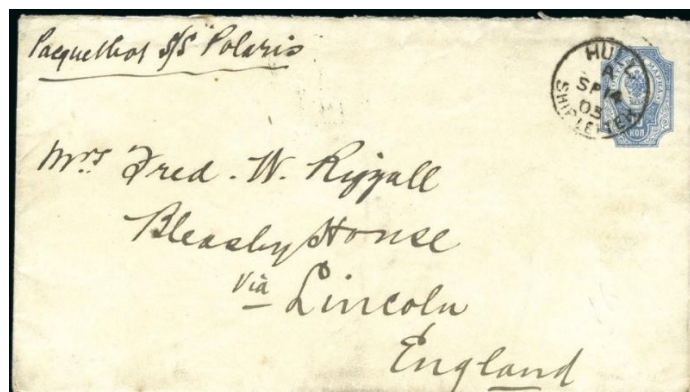 Pacquetbot S/S Polaris
HULL
A
SP 14
03
SHIP LETTER
МАРКА
КОП
Mrs Fred. W. Riggall
Bleasby House
via Lincoln
England